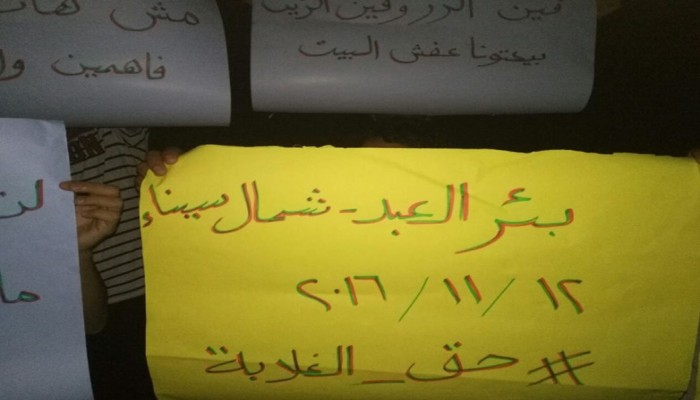 مش
فاهمين
فين الرز وفين الزيت
بيعتونا عفش البيت
بئر العبد - شمال سيناء
١٢ / ١١ / ٢٠١٦
# حق _ الغلابة
لن